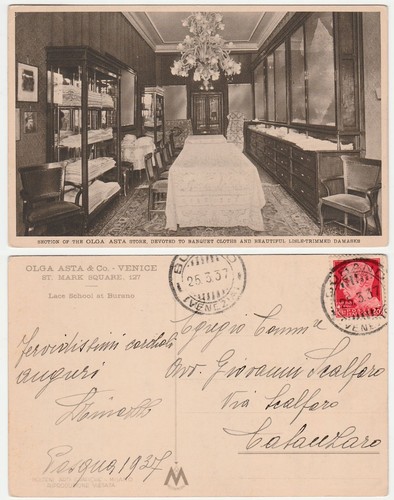 SECTION OF THE OLGA ASTA STORE, DEVOTED TO BANQUET CLOTHS AND BEAUTIFUL LISLE-TRIMMED DAMASKS
OLGA ASTA & Co. - VENICE
ST. MARK SQUARE, 127
Lace School at Burano
BURANO
26.3.37
(VENEZIA)
Fervidissimi cordiali
auguri
Pasqua 1937
Egregio Comm.
Avv. Giovanni Scalfaro
Via Scalfaro
Catanzaro
(VENEZIA)